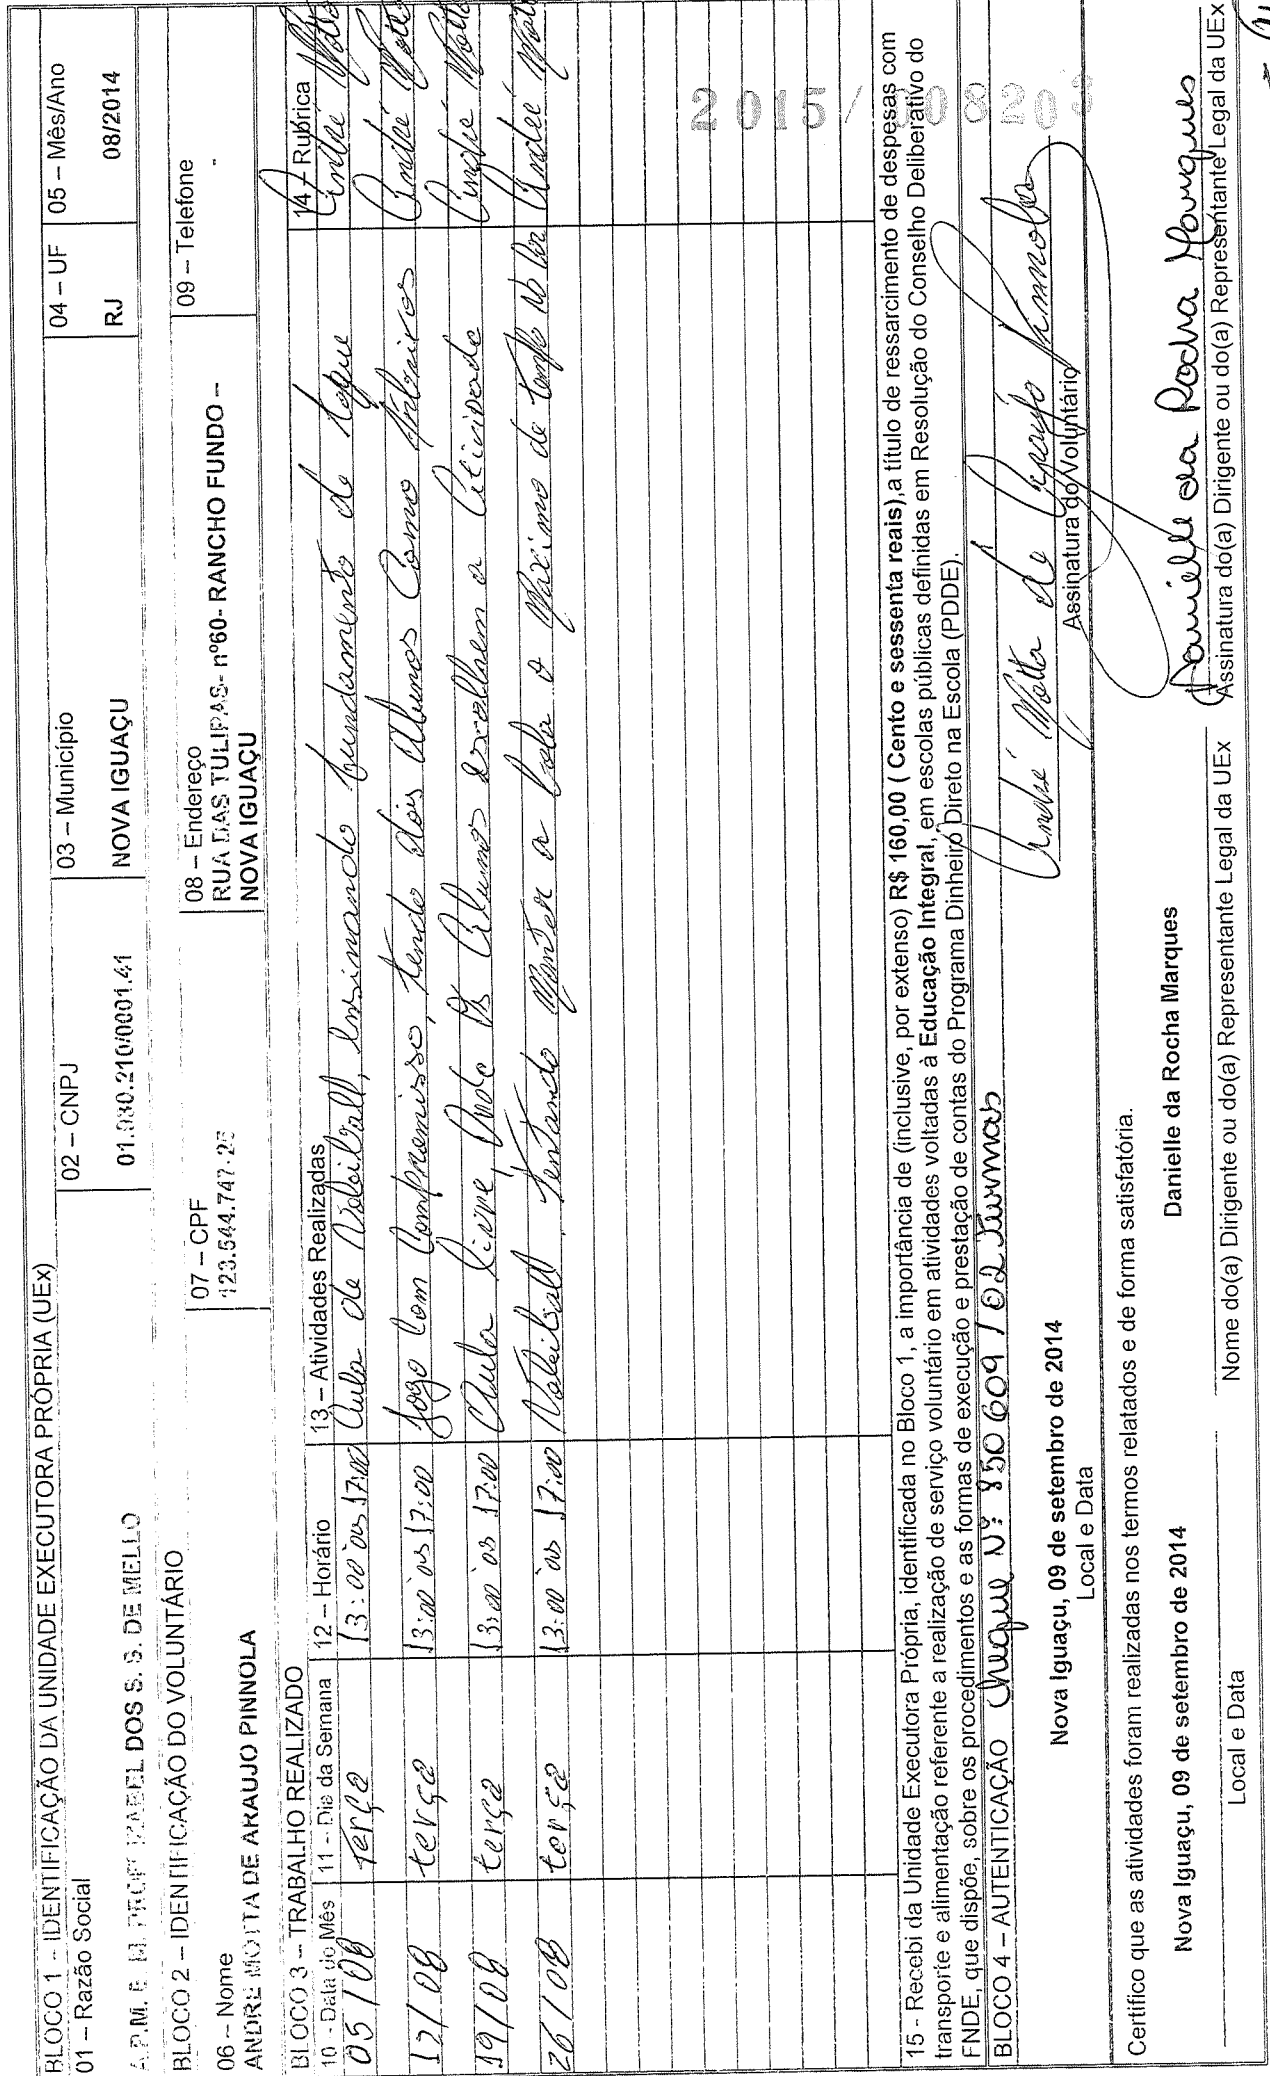 BLOCO 1 – IDENTIFICAÇÃO DA UNIDADE EXECUTORA PRÓPRIA (UEx)
01 – Razão Social
02 – CNPJ
03 – Município
04 – UF
05 – Mês/Ano
A.P.M. E. M. PROFª IZABEL DOS S. S. DE MELLO
01.930.210/0001.41
NOVA IGUAÇU
RJ
08/2014
BLOCO 2 – IDENTIFICAÇÃO DO VOLUNTÁRIO
06 – Nome
ANDRE MOTTA DE ARAUJO PINNOLA
07 – CPF
123.544.747-26
08 – Endereço
RUA DAS TULIPAS- nº60- RANCHO FUNDO –
NOVA IGUAÇU
09 – Telefone
-
BLOCO 3 – TRABALHO REALIZADO
10 - Data do Mês
11 – Dia da Semana
12 – Horário
13 – Atividades Realizadas
14 – Rubrica
05/08 Terça 13:00 às 17:00 Aula de Voleiball, ensinando fundamento de toque André Motta
12/08 terça 13:00 às 17:00 Jogo Com Compromisso, tendo dois Alunos Como Árbitros André Motta
19/08 terça 13:00 às 17:00 Aula livre, Onde Os Alunos escolhem a Atividade André Motta
26/08 terça 13:00 às 17:00 Voleiball. Tentando Manter a bola o Máximo de tempo No Ar André Motta
2015/008203
15 - Recebi da Unidade Executora Própria, identificada no Bloco 1, a importância de (inclusive, por extenso) R$ 160,00 ( Cento e sessenta reais),a título de ressarcimento de despesas com
transporte e alimentação referente a realização de serviço voluntário em atividades voltadas à Educação Integral, em escolas públicas definidas em Resolução do Conselho Deliberativo do
FNDE, que dispõe, sobre os procedimentos e as formas de execução e prestação de contas do Programa Dinheiro Direto na Escola (PDDE).
BLOCO 4 – AUTENTICAÇÃO Cheque Nº 850609 / 02 turmas
Nova Iguaçu, 09 de setembro de 2014
Local e Data
André Motta de Araújo Pinnola
Assinatura do Voluntário
Certifico que as atividades foram realizadas nos termos relatados e de forma satisfatória.
Nova Iguaçu, 09 de setembro de 2014
Local e Data
Danielle da Rocha Marques
Nome do(a) Dirigente ou do(a) Representante Legal da UEx
Danielle da Rocha Marques
Assinatura do(a) Dirigente ou do(a) Representante Legal da UEx